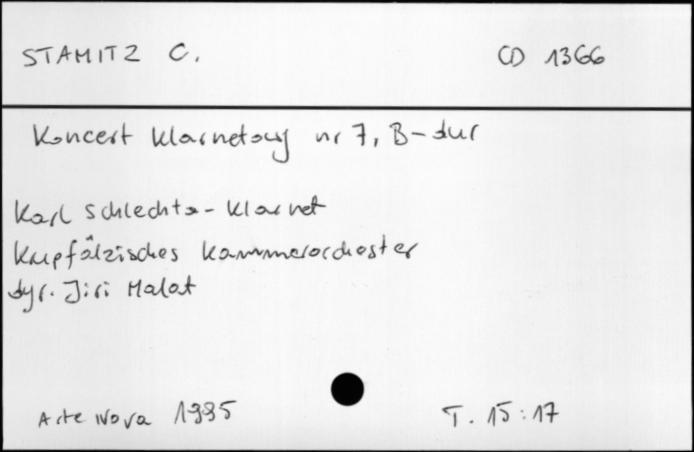 STAMITZ C. CD 1366
Koncert klarnetowy nr 7, B-dur
Karl Schlechta - klarnet
Kurpfälzisches Kammerorchester
dyr. Jiri Malat
Arte Nova 1995 T. 15:17